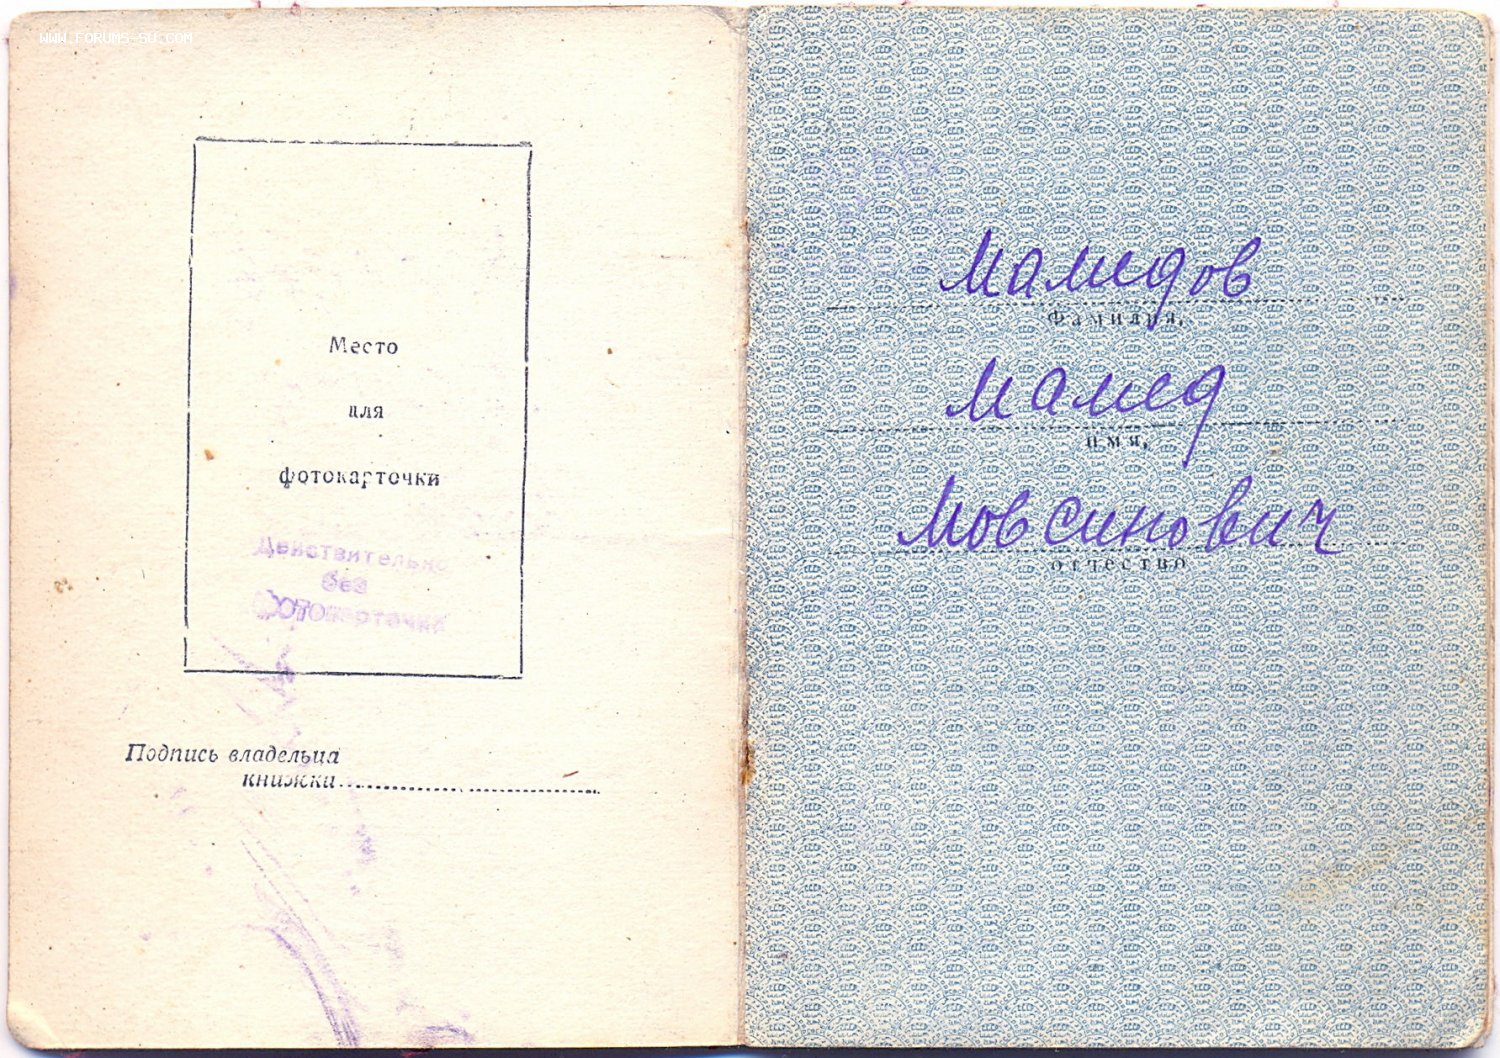 WWW.FORUMS-SU.COM
Место
для
фотокарточки
Действительно
без
фотокарточки
Подпись владельца
книжки
Мамедов
Фамилия,
Мамед
имя,
Мовсинович
отчество